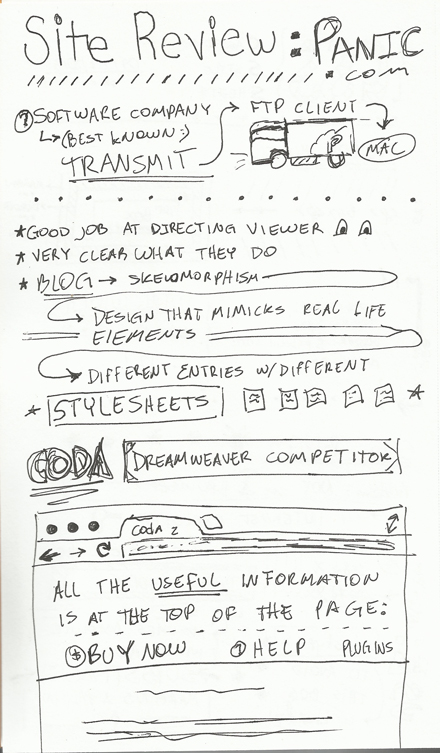 Site Review: PANIC
.com
? SOFTWARE COMPANY → FTP CLIENT
↳ (BEST KNOWN:)
TRANSMIT
MAC
* GOOD JOB AT DIRECTING VIEWER
* VERY CLEAR WHAT THEY DO
* BLOG → SKEWOMORPHISM
DESIGN THAT MIMICKS REAL LIFE
ELEMENTS
DIFFERENT ENTRIES W/DIFFERENT
* STYLESHEETS *
CODA DREAMWEAVER COMPETITOR
CODA 2
ALL THE USEFUL INFORMATION
IS AT THE TOP OF THE PAGE:
$ BUY NOW ? HELP PLUGINS